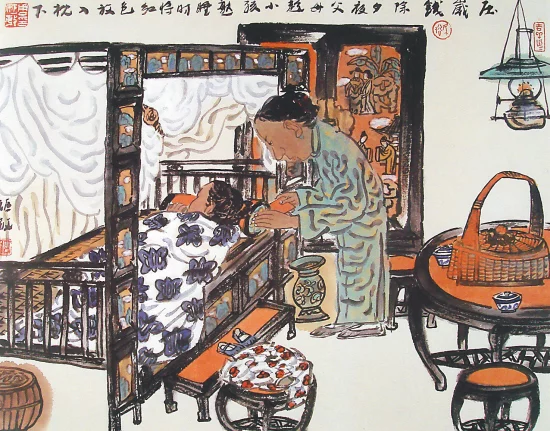 压歲錢除夕夜父母趁小孩熟睡时将红包放入枕下